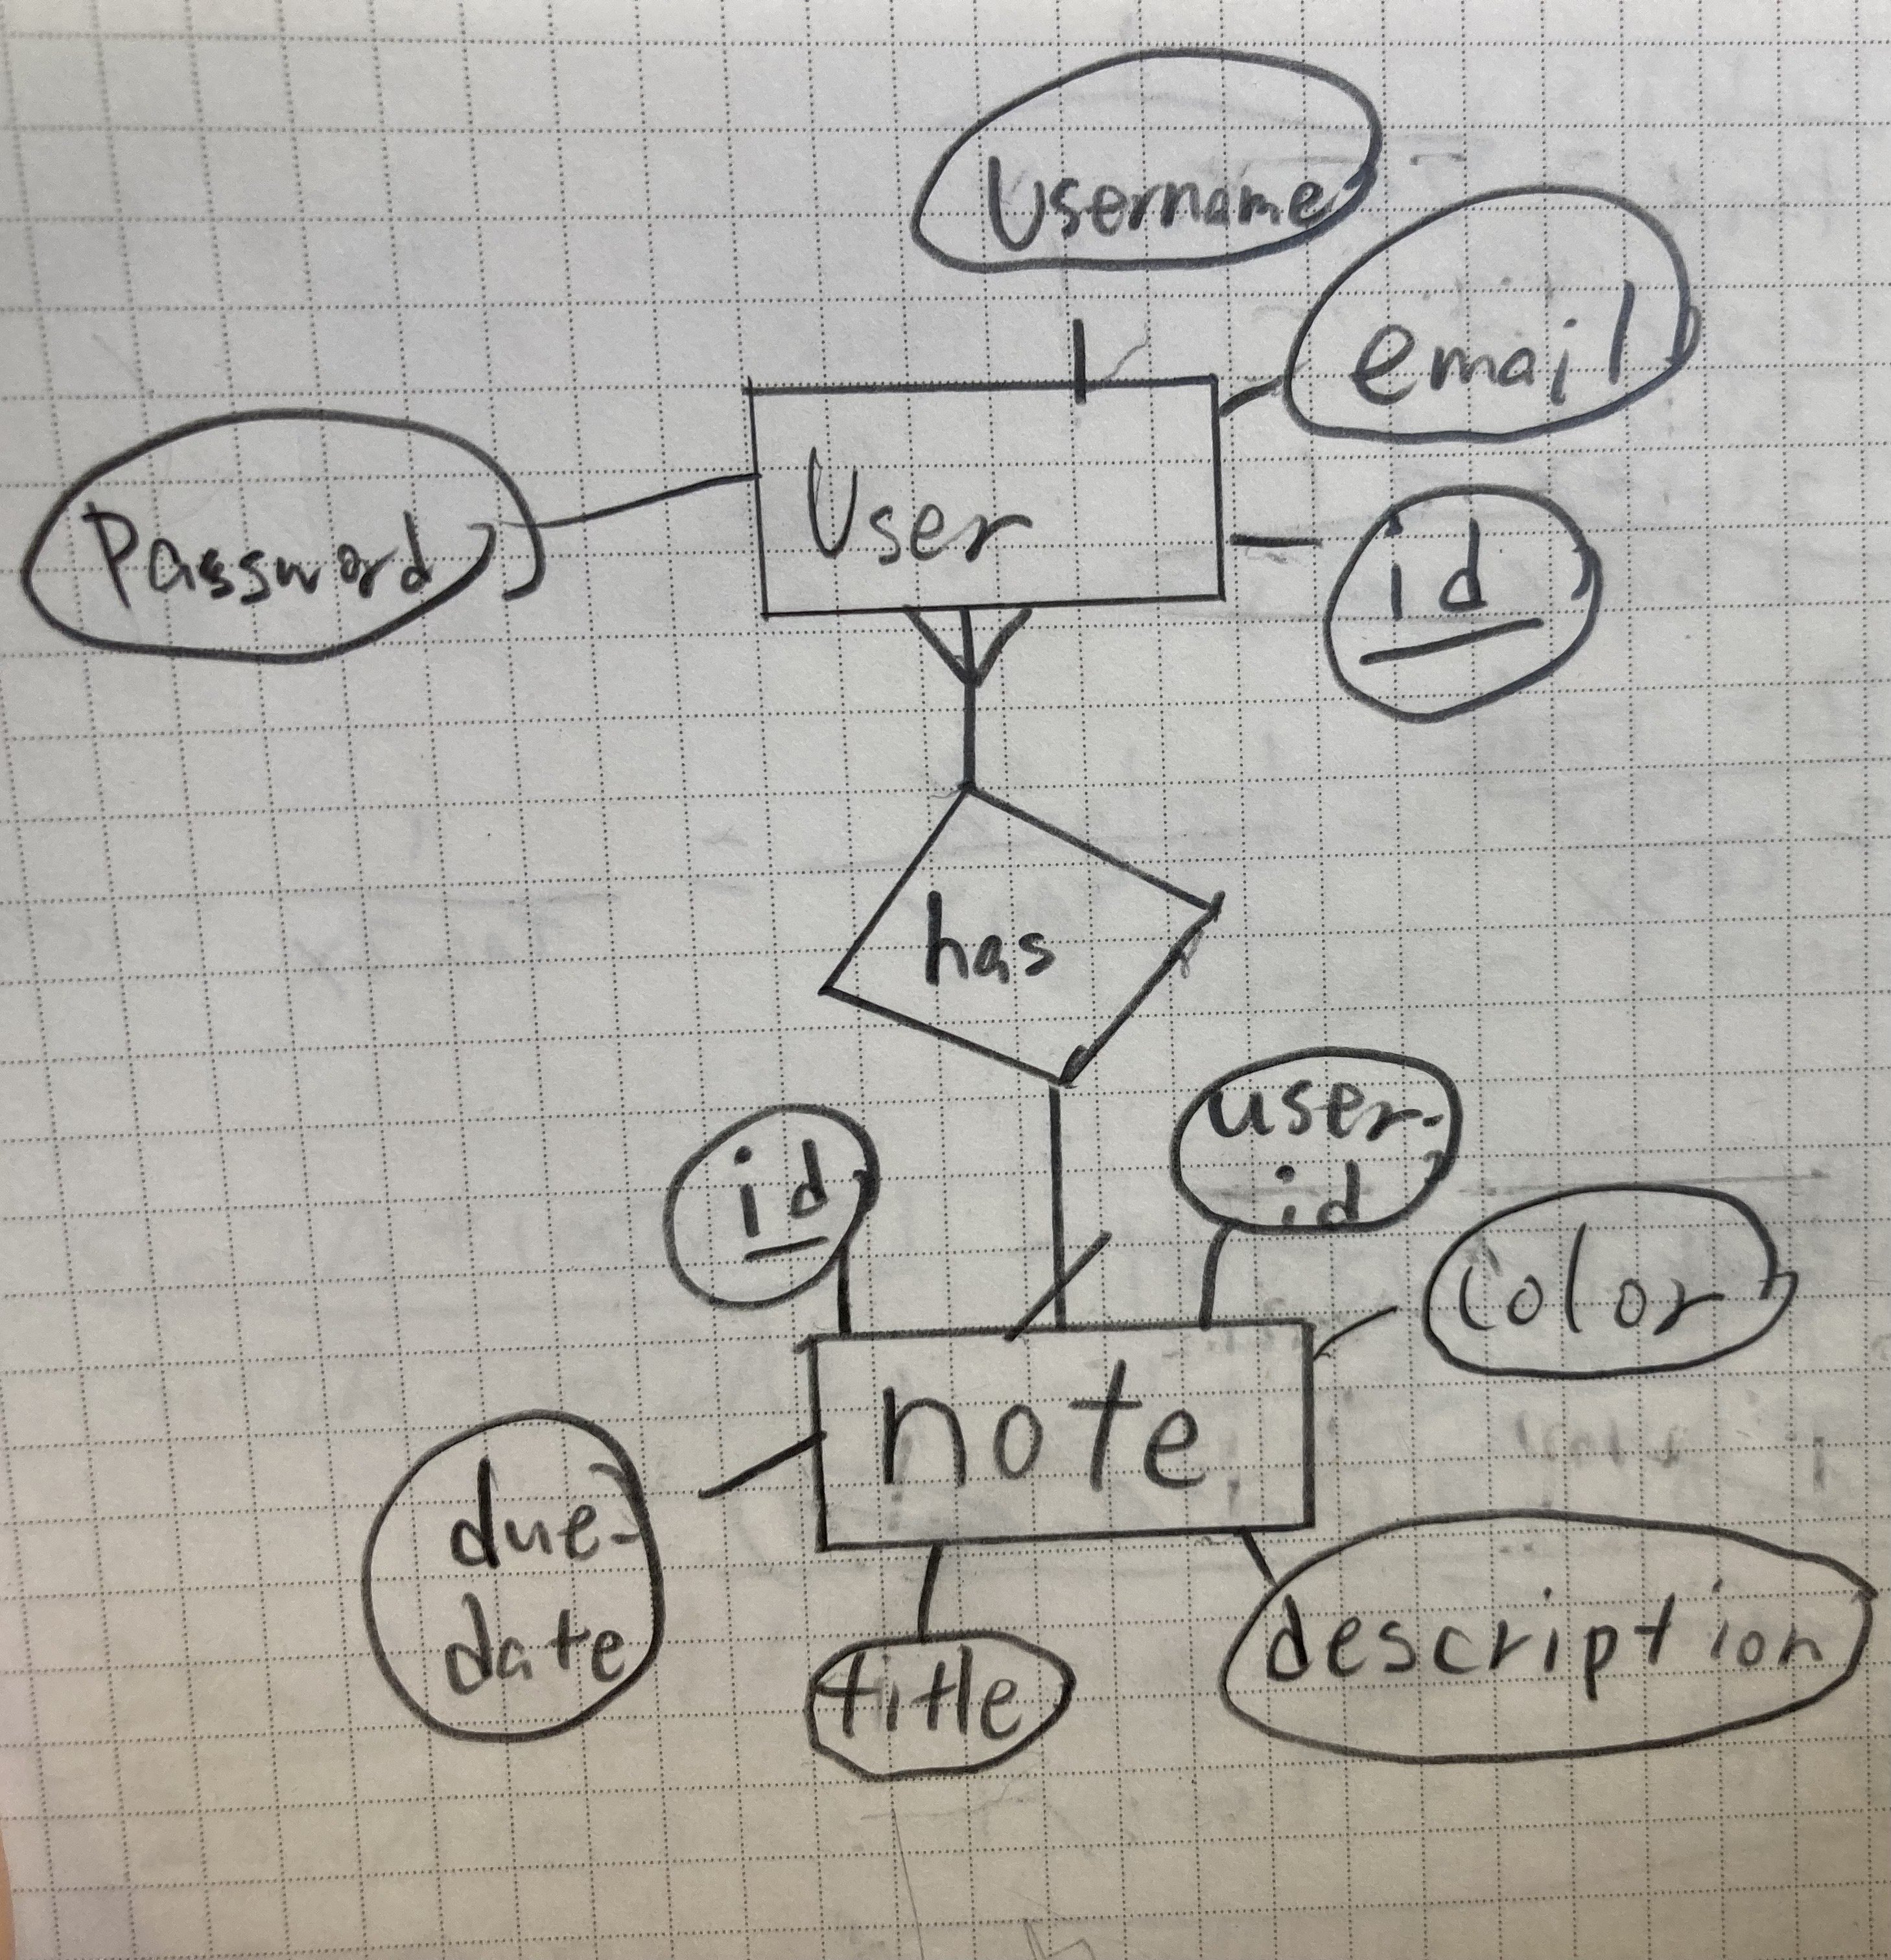 Username
email
Password
User
id
has
user-
id
id
color
note
due-
date
title
description